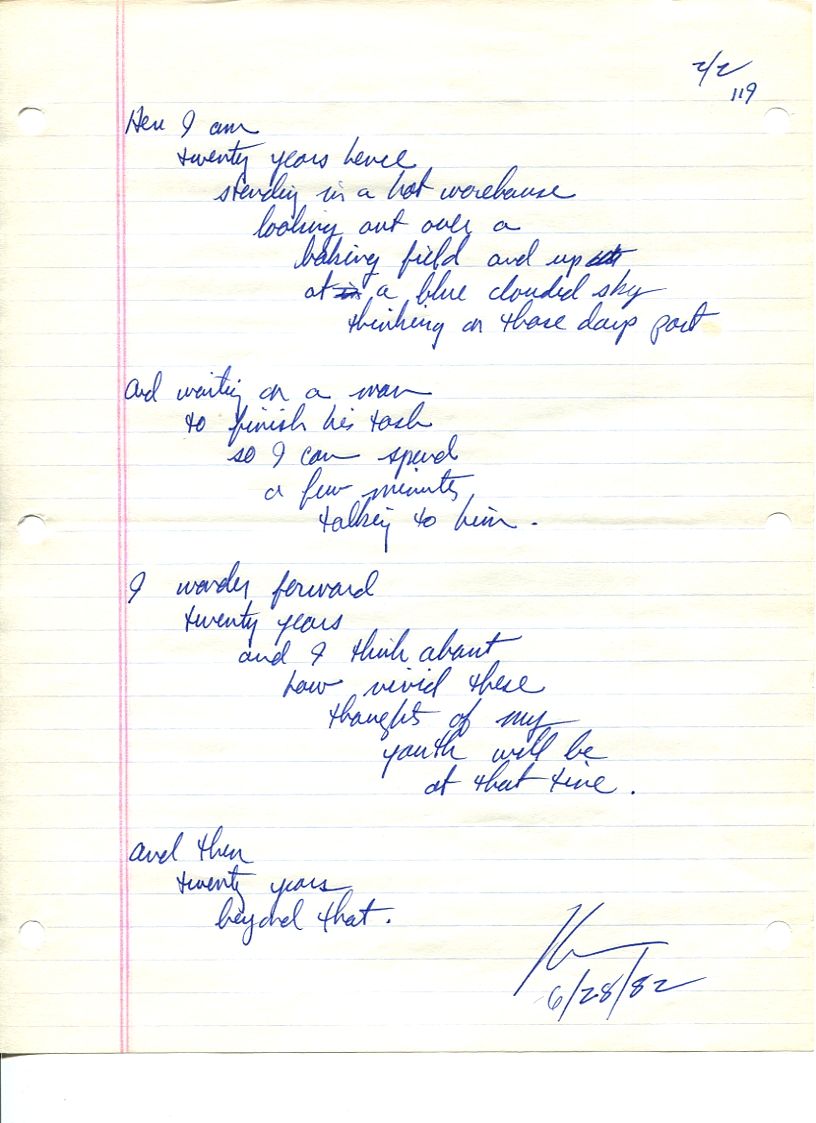 2/2
119
Here I am
twenty years hence
standing in a hot warehouse
looking out over a
baking field and up
at a blue clouded sky
thinking on those days past
And waiting on a man
to finish his task
so I can spend
a few minutes
talking to him.
I wonder forward
twenty years
and I think about
how vivid these
thoughts of my
youth will be
at that time.
and then
twenty years
beyond that.
6/28/82